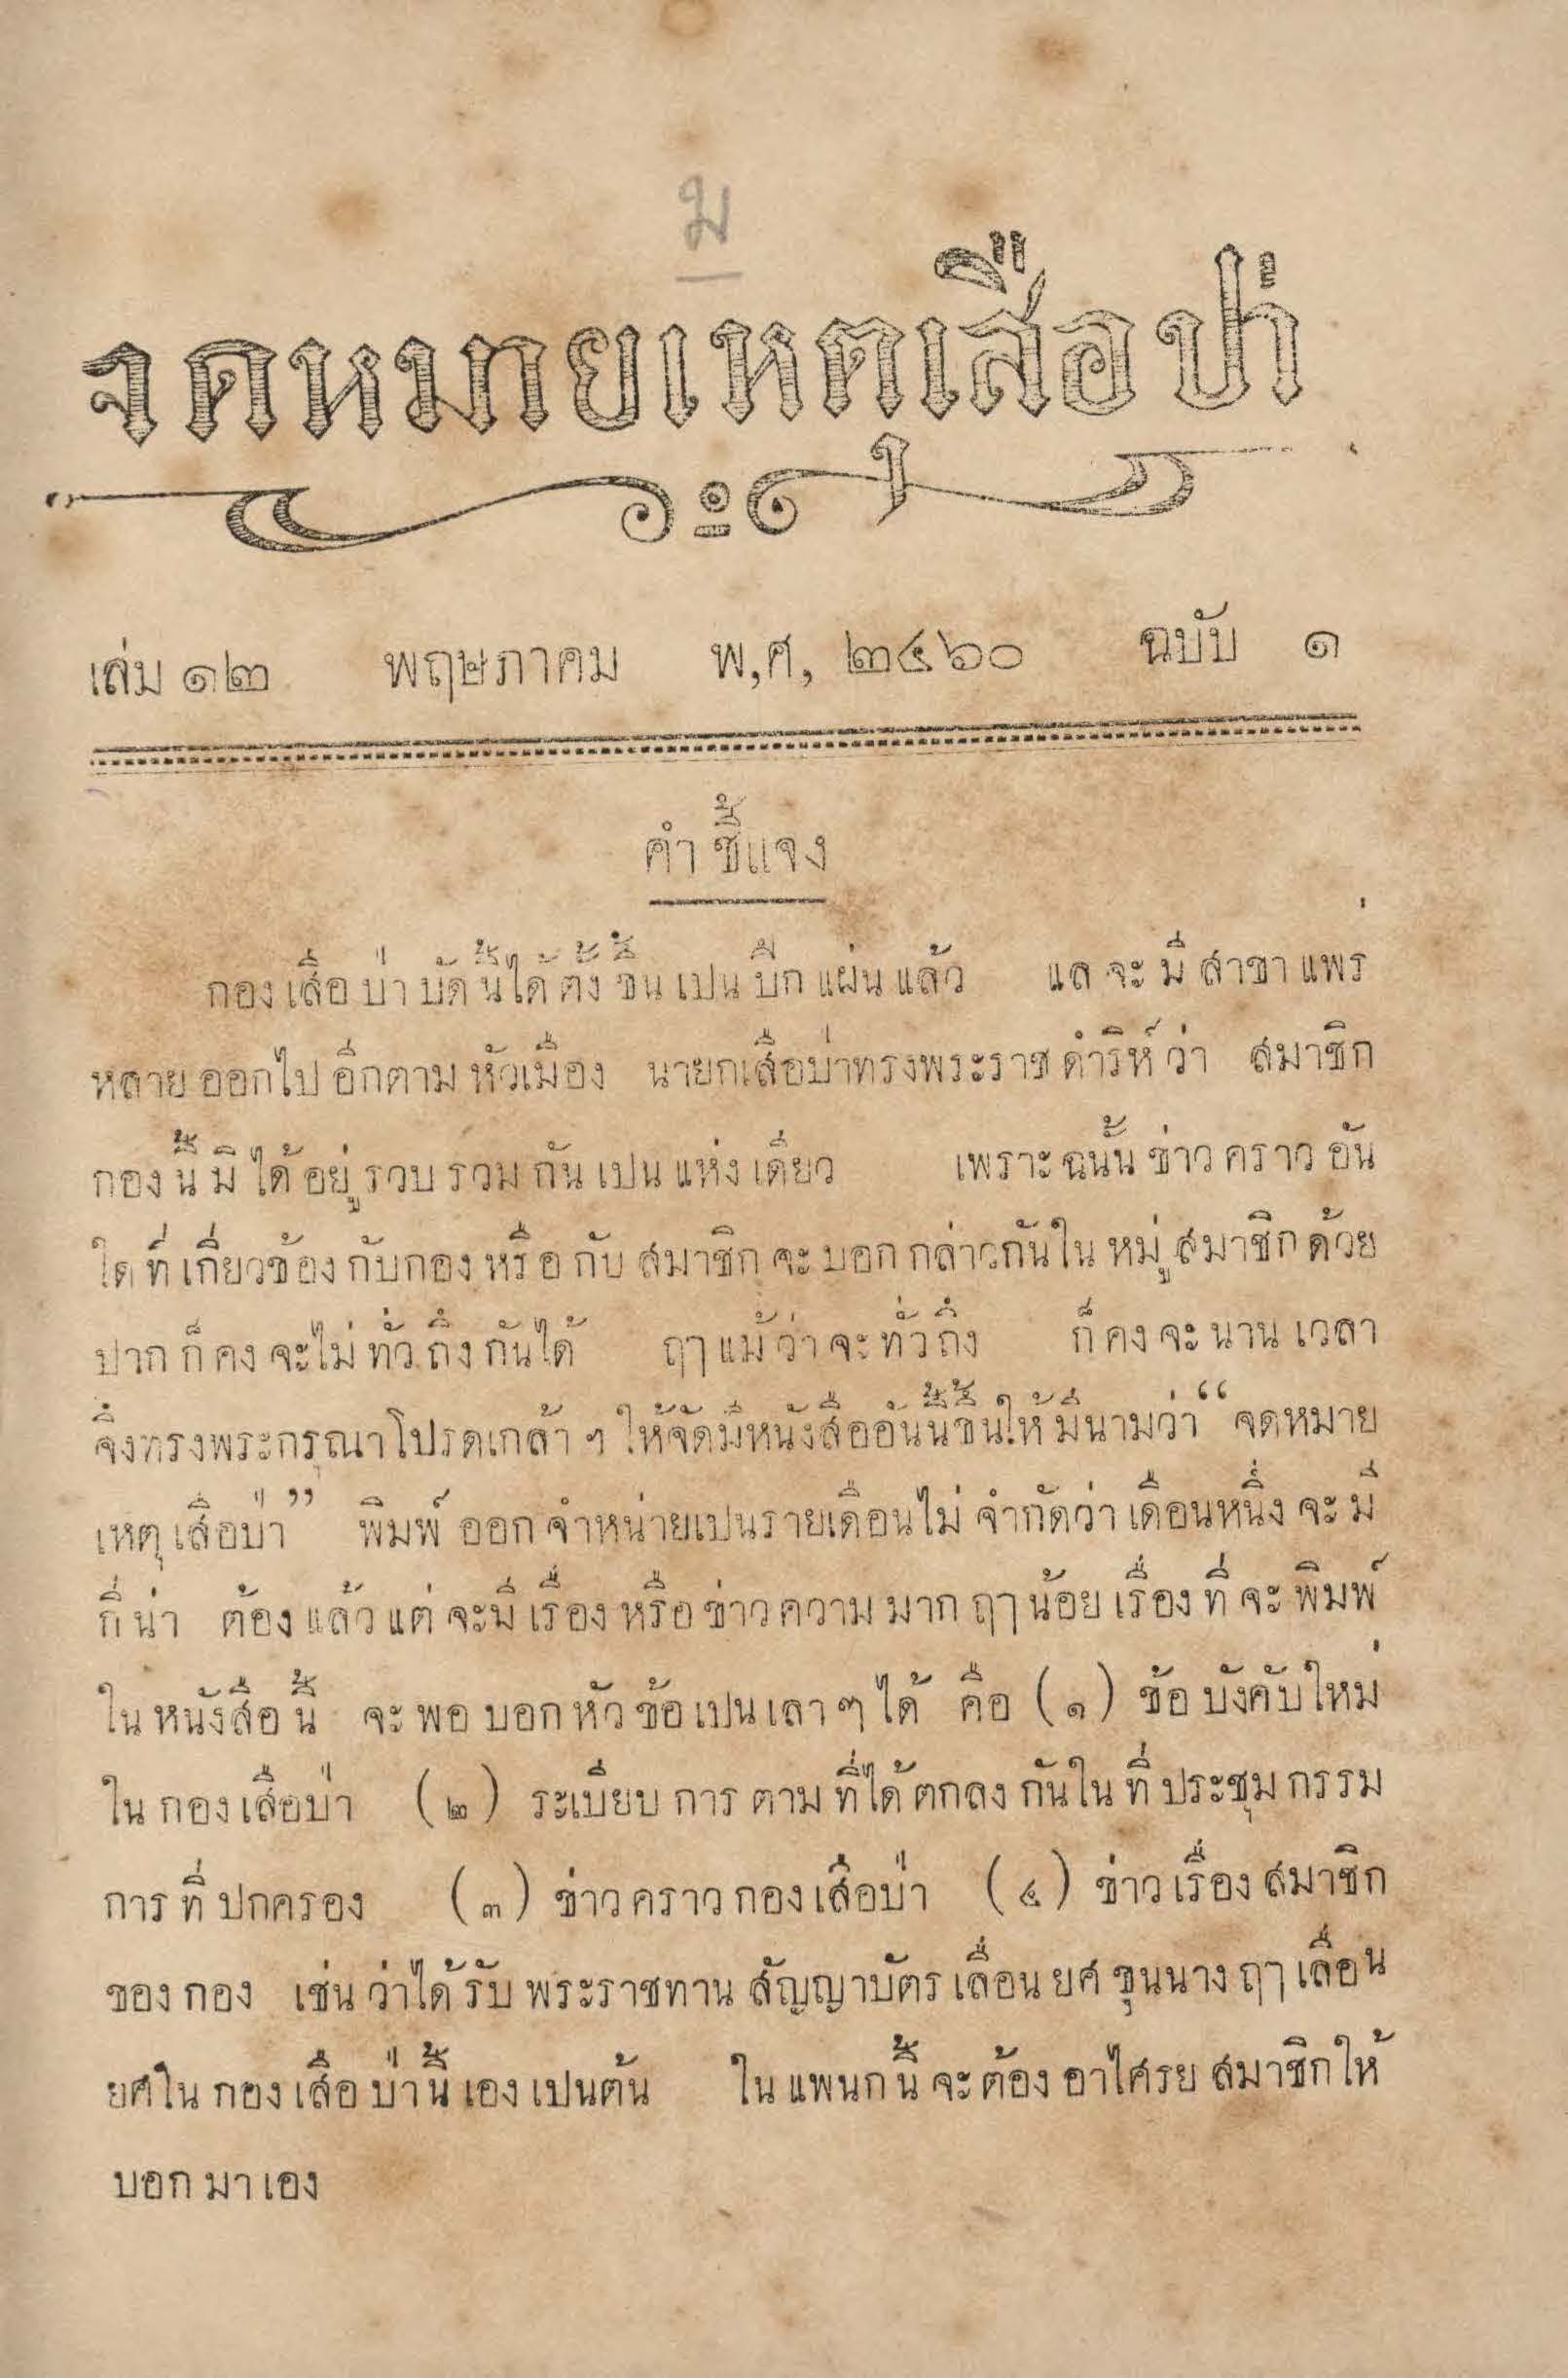 ม
จดหมายเหตุเสือป่า
เล่ม ๑๒ พฤษภาคม พ,ศ, ๒๔๖๐ ฉบับ ๑
คำชี้แจง
กองเสือป่าบัดนี้ได้ตั้งขึ้นเปนปึกแผ่นแล้ว แลจะมีสาขาแพร่
หลายออกไปอีกตามหัวเมือง นายกเสือป่าทรงพระราชดำริห์ว่า สมาชิก
กองนี้มิได้อยู่รวบรวมกันเปนแห่งเดียว เพราะฉนั้นข่าวคราวอัน
ใดที่เกี่ยวข้องกับกองหรือกับสมาชิกจะบอกกล่าวกันในหมู่สมาชิกด้วย
ปากก็คงจะไม่ทั่วถึงกันได้ ฤๅแม้ว่าจะทั่วถึง ก็คงจะนานเวลา
จึงทรงพระกรุณาโปรดเกล้า ฯ ให้จัดมีหนังสืออันนี้ขึ้นให้มีนามว่า “จดหมาย
เหตุเสือป่า” พิมพ์ออกจำหน่ายเปนรายเดือนไม่จำกัดว่าเดือนหนึ่งจะมี
กี่น่า ต้องแล้วแต่จะมีเรื่องหรือข่าวความมากฤๅน้อยเรื่องที่จะพิมพ์
ในหนังสือนี้ จะพอบอกหัวข้อเปนเลาๆได้ คือ (๑) ข้อบังคับใหม่
ในกองเสือป่า (๒) ระเบียบการตามที่ได้ตกลงกันในที่ประชุมกรรม
การที่ปกครอง (๓) ข่าวคราวกองเสือป่า (๔) ข่าวเรื่องสมาชิก
ของกอง เช่นว่าได้รับพระราชทานสัญญาบัตรเลื่อนยศขุนนางฤๅเลื่อน
ยศในกองเสือป่านี้เองเปนต้น ในแพนกนี้จะต้องอาไศรยสมาชิกให้
บอกมาเอง